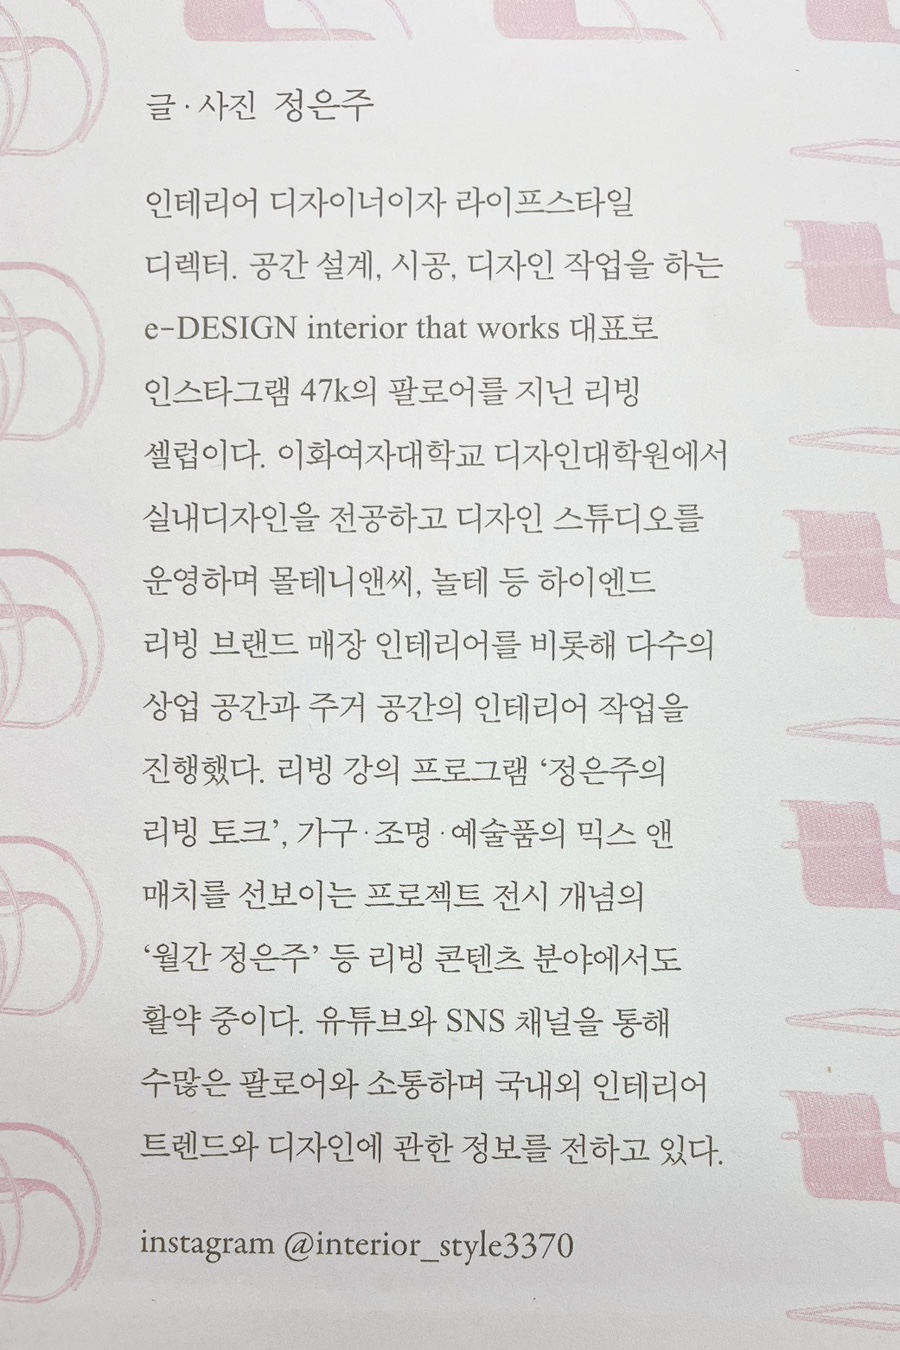 글·사진 정은주
인테리어 디자이너이자 라이프스타일
디렉터. 공간 설계, 시공, 디자인 작업을 하는
e-DESIGN interior that works 대표로
인스타그램 47k의 팔로어를 지닌 리빙
셀럽이다. 이화여자대학교 디자인대학원에서
실내디자인을 전공하고 디자인 스튜디오를
운영하며 몰테니앤씨, 놀테 등 하이엔드
리빙 브랜드 매장 인테리어를 비롯해 다수의
상업 공간과 주거 공간의 인테리어 작업을
진행했다. 리빙 강의 프로그램 ‘정은주의
리빙 토크’, 가구·조명·예술품의 믹스 앤
매치를 선보이는 프로젝트 전시 개념의
‘월간 정은주’ 등 리빙 콘텐츠 분야에서도
활약 중이다. 유튜브와 SNS 채널을 통해
수많은 팔로어와 소통하며 국내외 인테리어
트렌드와 디자인에 관한 정보를 전하고 있다.
instagram @interior_style3370